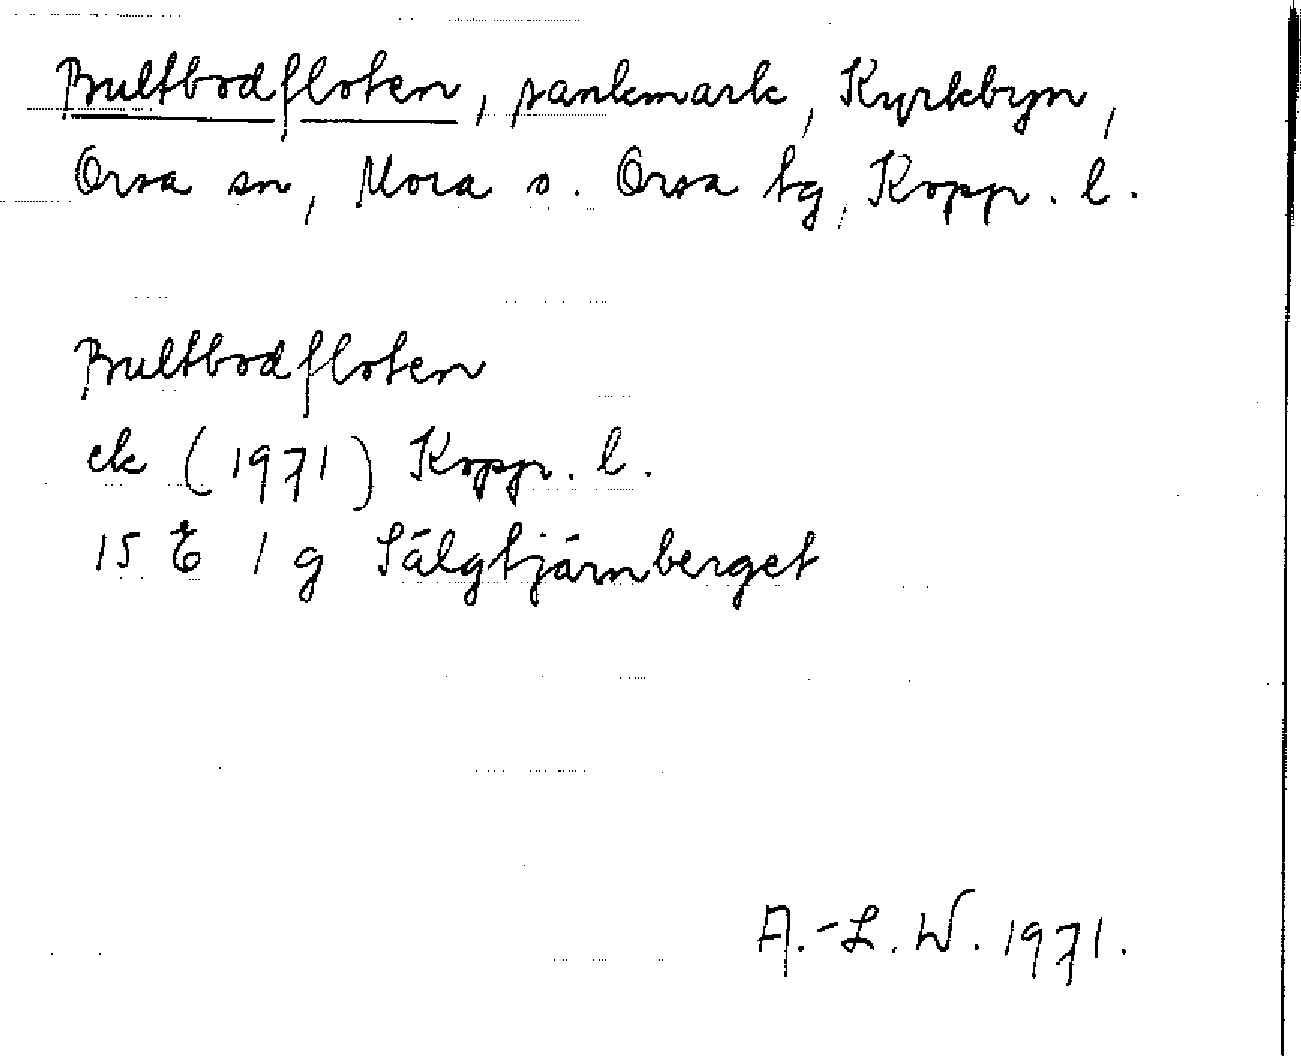 Bultbodfloten, sankmark, Kyrkbyn,
Orsa sn, Mora o. Orsa tg, Kopp. l.
Bultbodfloten
ek (1971) Kopp. l.
15 E 1 g Sälgtjärnberget
A.-L. W. 1971.